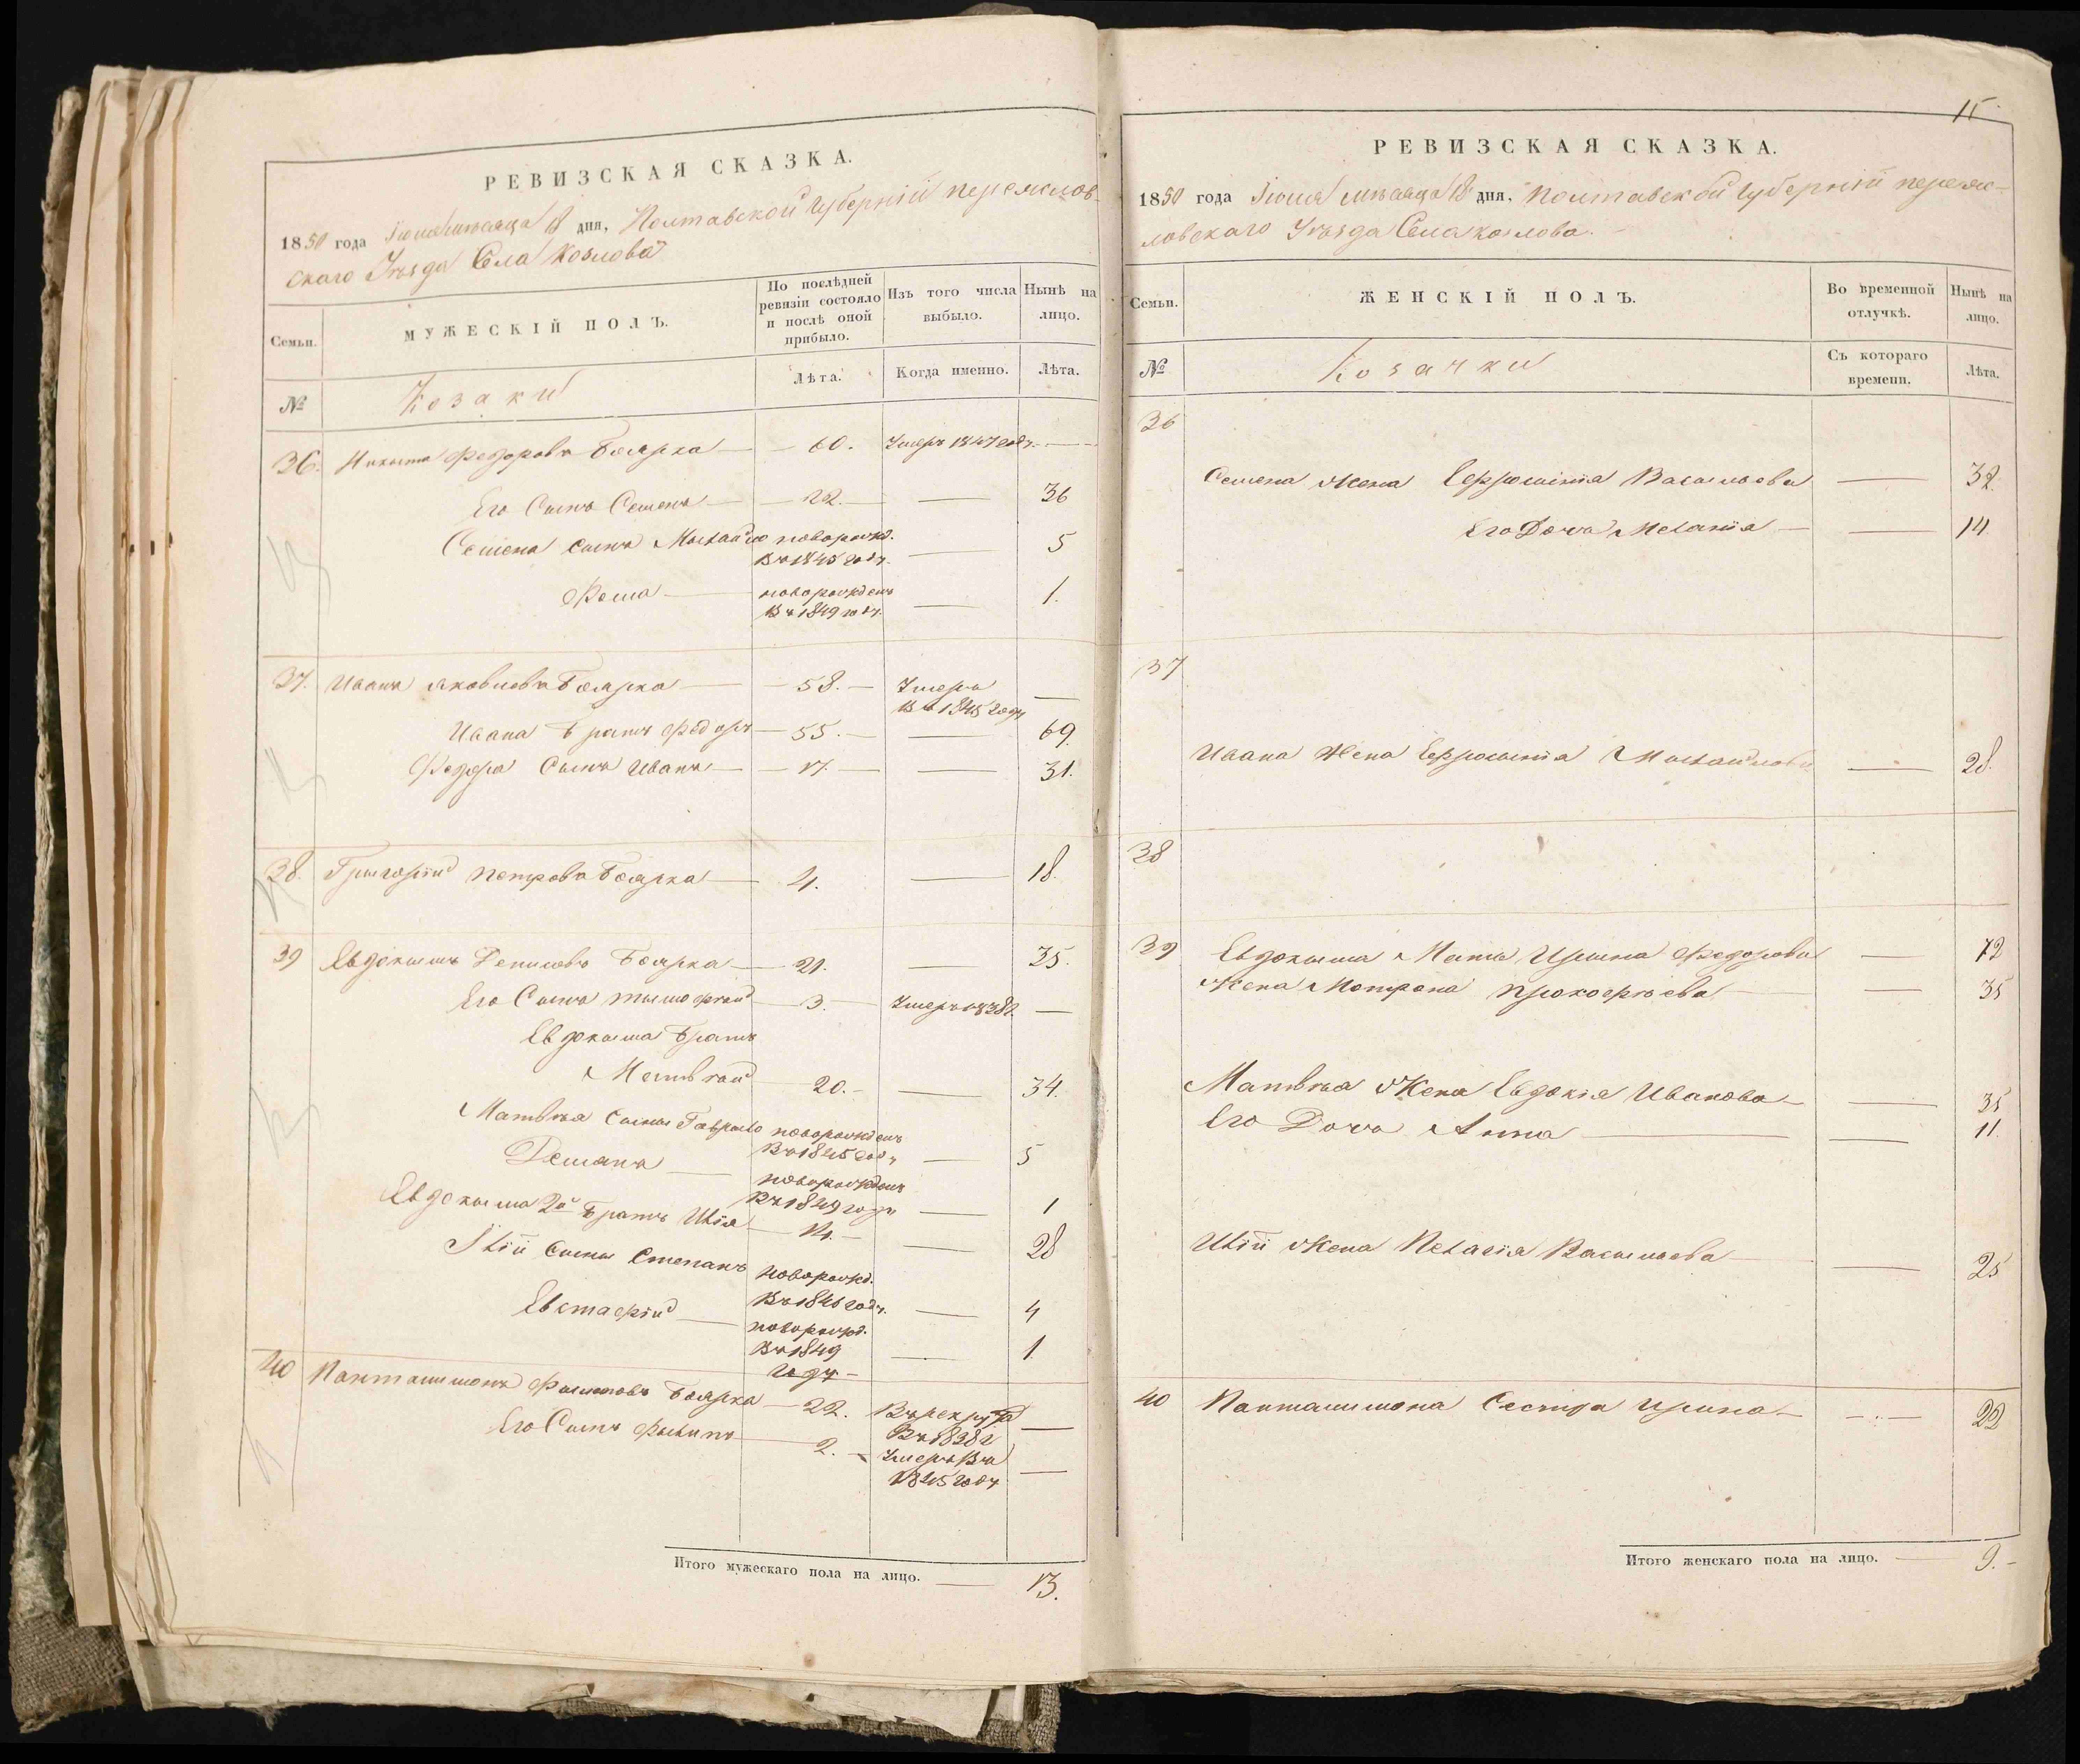 РЕВИЗСКАЯ СКАЗКА.
1850 года Іюня мѣсяца 18 дня, Полтавской губерніи переяслов-
скаго Уѣзда Села Козлова
Семьи.
МУЖЕСКІЙ ПОЛЪ.
По послѣдней ревизіи состояло и послѣ оной прибыло.
Изъ того числа выбыло.
Нынѣ на лицо.
№
Козаки
Лѣта.
Когда именно.
Лѣта.
36. Никита Федоровъ Боярка — 60. Умеръ 1847 году. —
Его Сынъ Семенъ — 22. — 36
Семена сынъ Михайло новорожд. Въ 1845 году. — 5
Фома — новорожденъ Въ 1849 году. — 1.
37. Иванъ яковлевъ Боярка — 58. — Умеръ Въ 1845 году —
Ивана Братъ Федоръ — 55. — 69.
Федора Сынъ Иванъ — 17. — 31.
38. Григорій Петровъ Боярка — 4. — 18.
39 Евдокимъ Денисовъ Боярка — 21. — 35.
Его Сынъ тимофтей — 3. — Умеръ 1838 г. —
Евдокима Братъ
Матвѣй — 20. — 34.
Матвѣя Сыны Гаврило новорожденъ Въ 1845 году — 5
Демянъ — новорожденъ Въ 1849 году — 1
Евдокима 2й Братъ Илія — 14. — 28
Іліи Сыны Степанъ новорожд. Въ 1846 году. — 4
Евстафій — новорожд. Въ 1849 году — 1.
40 Пантелимонъ Филиповъ Боярка — 22. Въ рекрута Въ 1838 г —
Его Сынъ Филипъ — 2. — Умеръ Въ 1845 году —
Итого мужескаго пола на лицо. — 13.
15
РЕВИЗСКАЯ СКАЗКА.
1850 года Іюня мѣсяца 18 дня, Полтавской губерніи переяс-
ловскаго Уѣзда Села козлова.
Семьи.
ЖЕНСКІЙ ПОЛЪ.
Во временной отлучкѣ.
Нынѣ на лицо.
№
Козачки
Съ котораго времени.
Лѣта.
36
Семена жена Ефросинія Васильева — 32.
Его Доча Меланія — 14.
37
Ивана Жена Ефросинія Михайлова — 28.
38
39 Евдокима Мать Ирина Федорова — 72
Жена Мотрона прокофьева — 35
Матвѣя Жена Евдокія Иванова — 35
Его Доча Анна — 11.
Иліи Жена Пелагія Васильева — 25
40 Пантелимона Сестра Ирина — 22
Итого женскаго пола на лицо. — 9. —